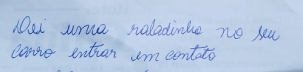 Dei uma raladinha no seu
carro entrar em contato